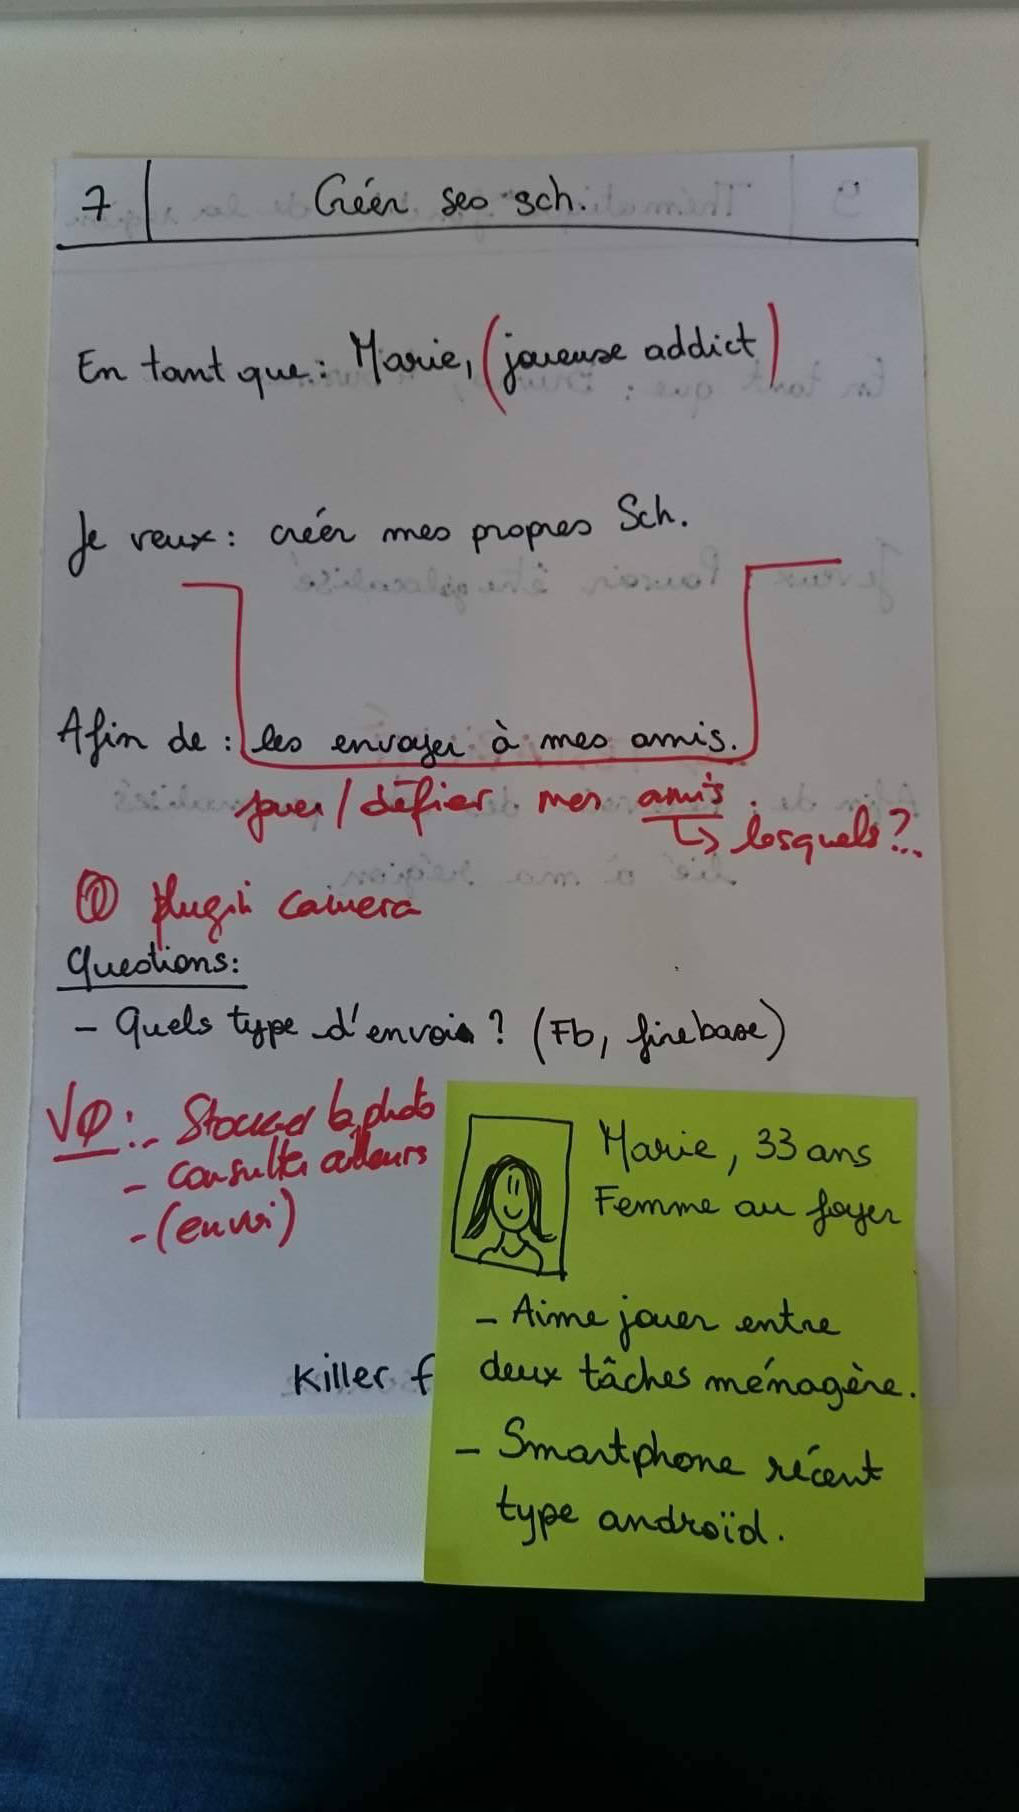 7 Créer ses sch.
En tant que : Marie, (joueuse addict)
Je veux : créer mes propres Sch.
Afin de : les envoyer à mes amis.
jouer / défier mes amis.
↳ lesquels ?..
① plugin camera
Questions :
- Quels type d'envoi ? (Fb, firebase)
VØ : - Stocker la photo
- consulter ailleurs
- (envoi)
Killer f
Marie, 33 ans
Femme au foyer
- Aime jouer entre
deux tâches ménagère.
- Smartphone récent
type androïd.